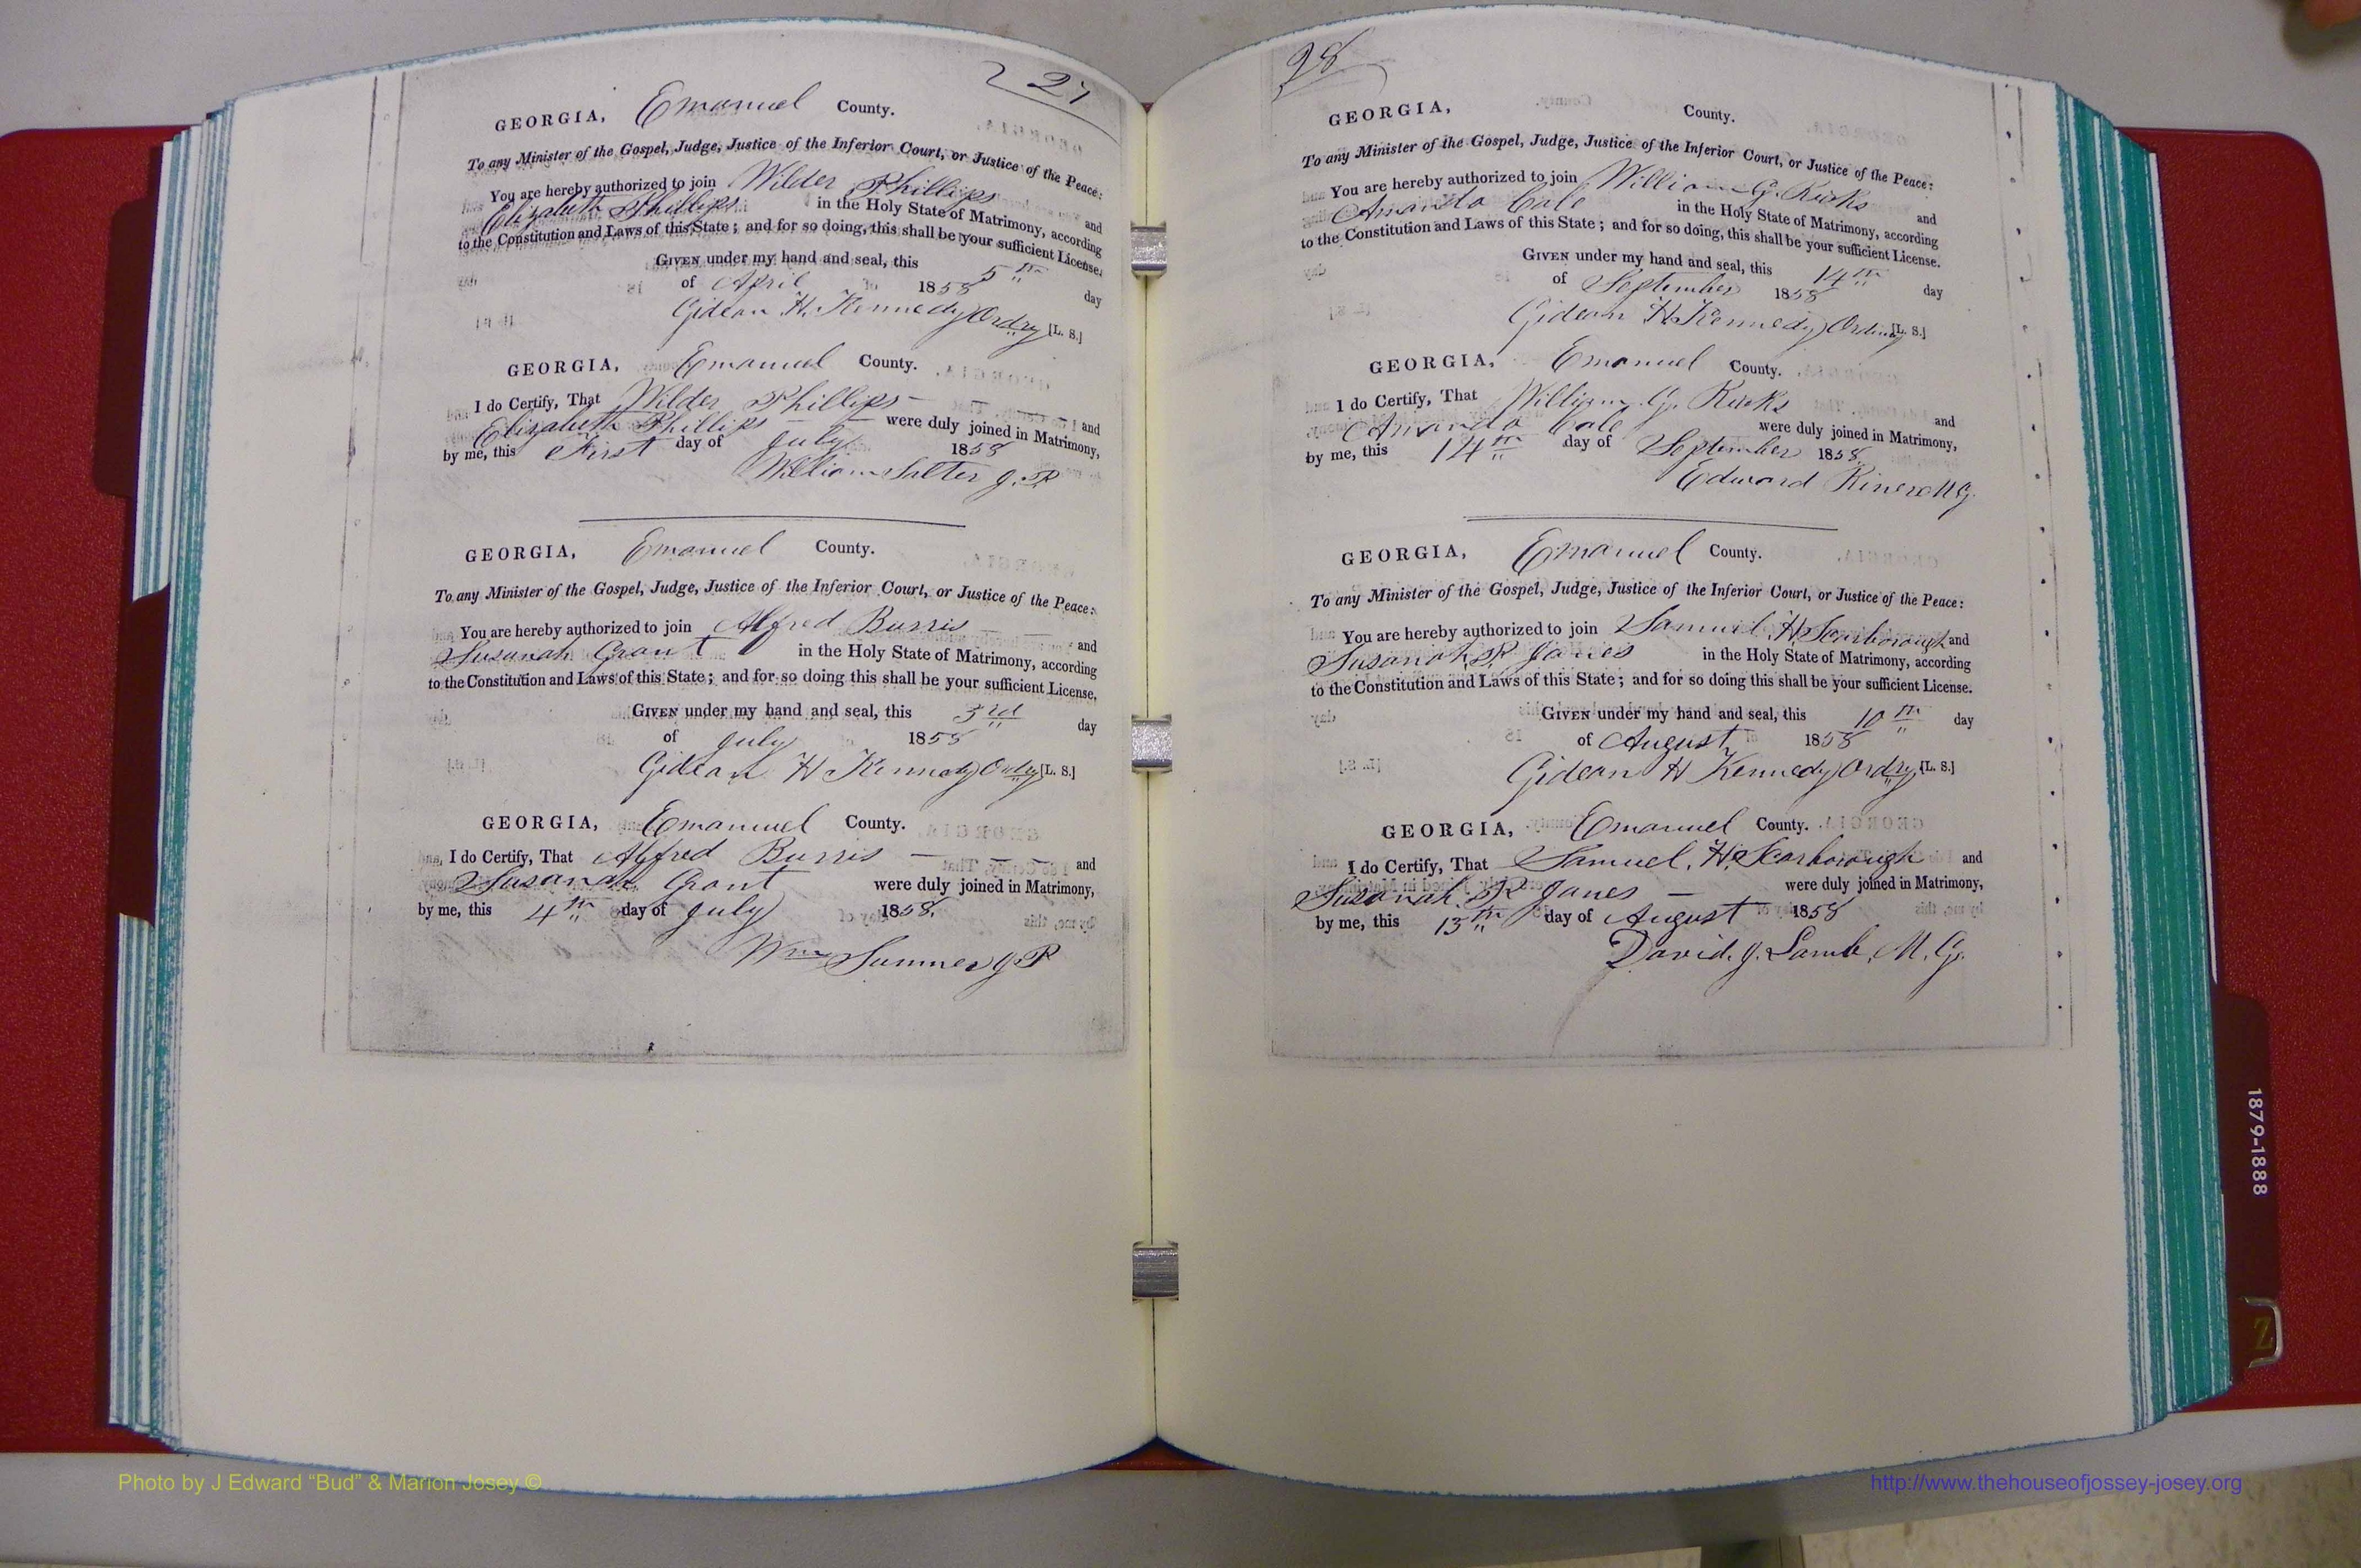 27
GEORGIA, Emanuel County.
To any Minister of the Gospel, Judge, Justice of the Inferior Court, or Justice of the Peace:
You are hereby authorized to join Wilder Phillips and
Elizabeth Phillips in the Holy State of Matrimony, according
to the Constitution and Laws of this State; and for so doing, this shall be your sufficient License.
GIVEN under my hand and seal, this 5th day
of April 1858
Gideon H. Kennedy Ordry [L. S.]
GEORGIA, Emanuel County.
I do Certify, That Wilder Phillips and
Elizabeth Phillips were duly joined in Matrimony,
by me, this First day of July 1858
William Salter J. P
GEORGIA, Emanuel County.
To any Minister of the Gospel, Judge, Justice of the Inferior Court, or Justice of the Peace:
You are hereby authorized to join Alfred Burris and
Susanah Grant in the Holy State of Matrimony, according
to the Constitution and Laws of this State; and for so doing this shall be your sufficient License,
GIVEN under my hand and seal, this 3rd day
of July 1858
Gideon H Kennedy Ordry [L. S.]
GEORGIA, Emanuel County.
I do Certify, That Alfred Burris and
Susanah Grant were duly joined in Matrimony,
by me, this 4th day of July 1858.
Wm Sumner J P
28
GEORGIA, County.
To any Minister of the Gospel, Judge, Justice of the Inferior Court, or Justice of the Peace:
You are hereby authorized to join William G. Ricks and
Amanda Cale in the Holy State of Matrimony, according
to the Constitution and Laws of this State; and for so doing, this shall be your sufficient License.
GIVEN under my hand and seal, this 14th day
of September 1858
Gideon H Kennedy [L. S.]
GEORGIA, Emanuel County.
I do Certify, That William G. Ricks and
Amanda Cale were duly joined in Matrimony,
by me, this 14th day of September 1858.
Edward Riner M G.
GEORGIA, Emanuel County.
To any Minister of the Gospel, Judge, Justice of the Inferior Court, or Justice of the Peace:
You are hereby authorized to join Samuel. H. Scarborough and
Susanah. R. Janes in the Holy State of Matrimony, according
to the Constitution and Laws of this State; and for so doing this shall be your sufficient License.
GIVEN under my hand and seal, this 10th day
of August 1858
Gideon H Kennedy Ordry [L. S.]
GEORGIA, Emanuel County.
I do Certify, That Samuel. H. Scarborough and
Susanah. R Janes were duly joined in Matrimony,
by me, this 13th day of August 1858
David. J. Lamb, M. G.
1879-1888
Z
Photo by J Edward “Bud” & Marion Josey ©
http://www.thehouseofjossey-josey.org